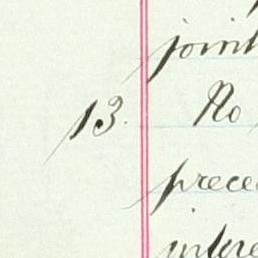 joint
13. No
prece